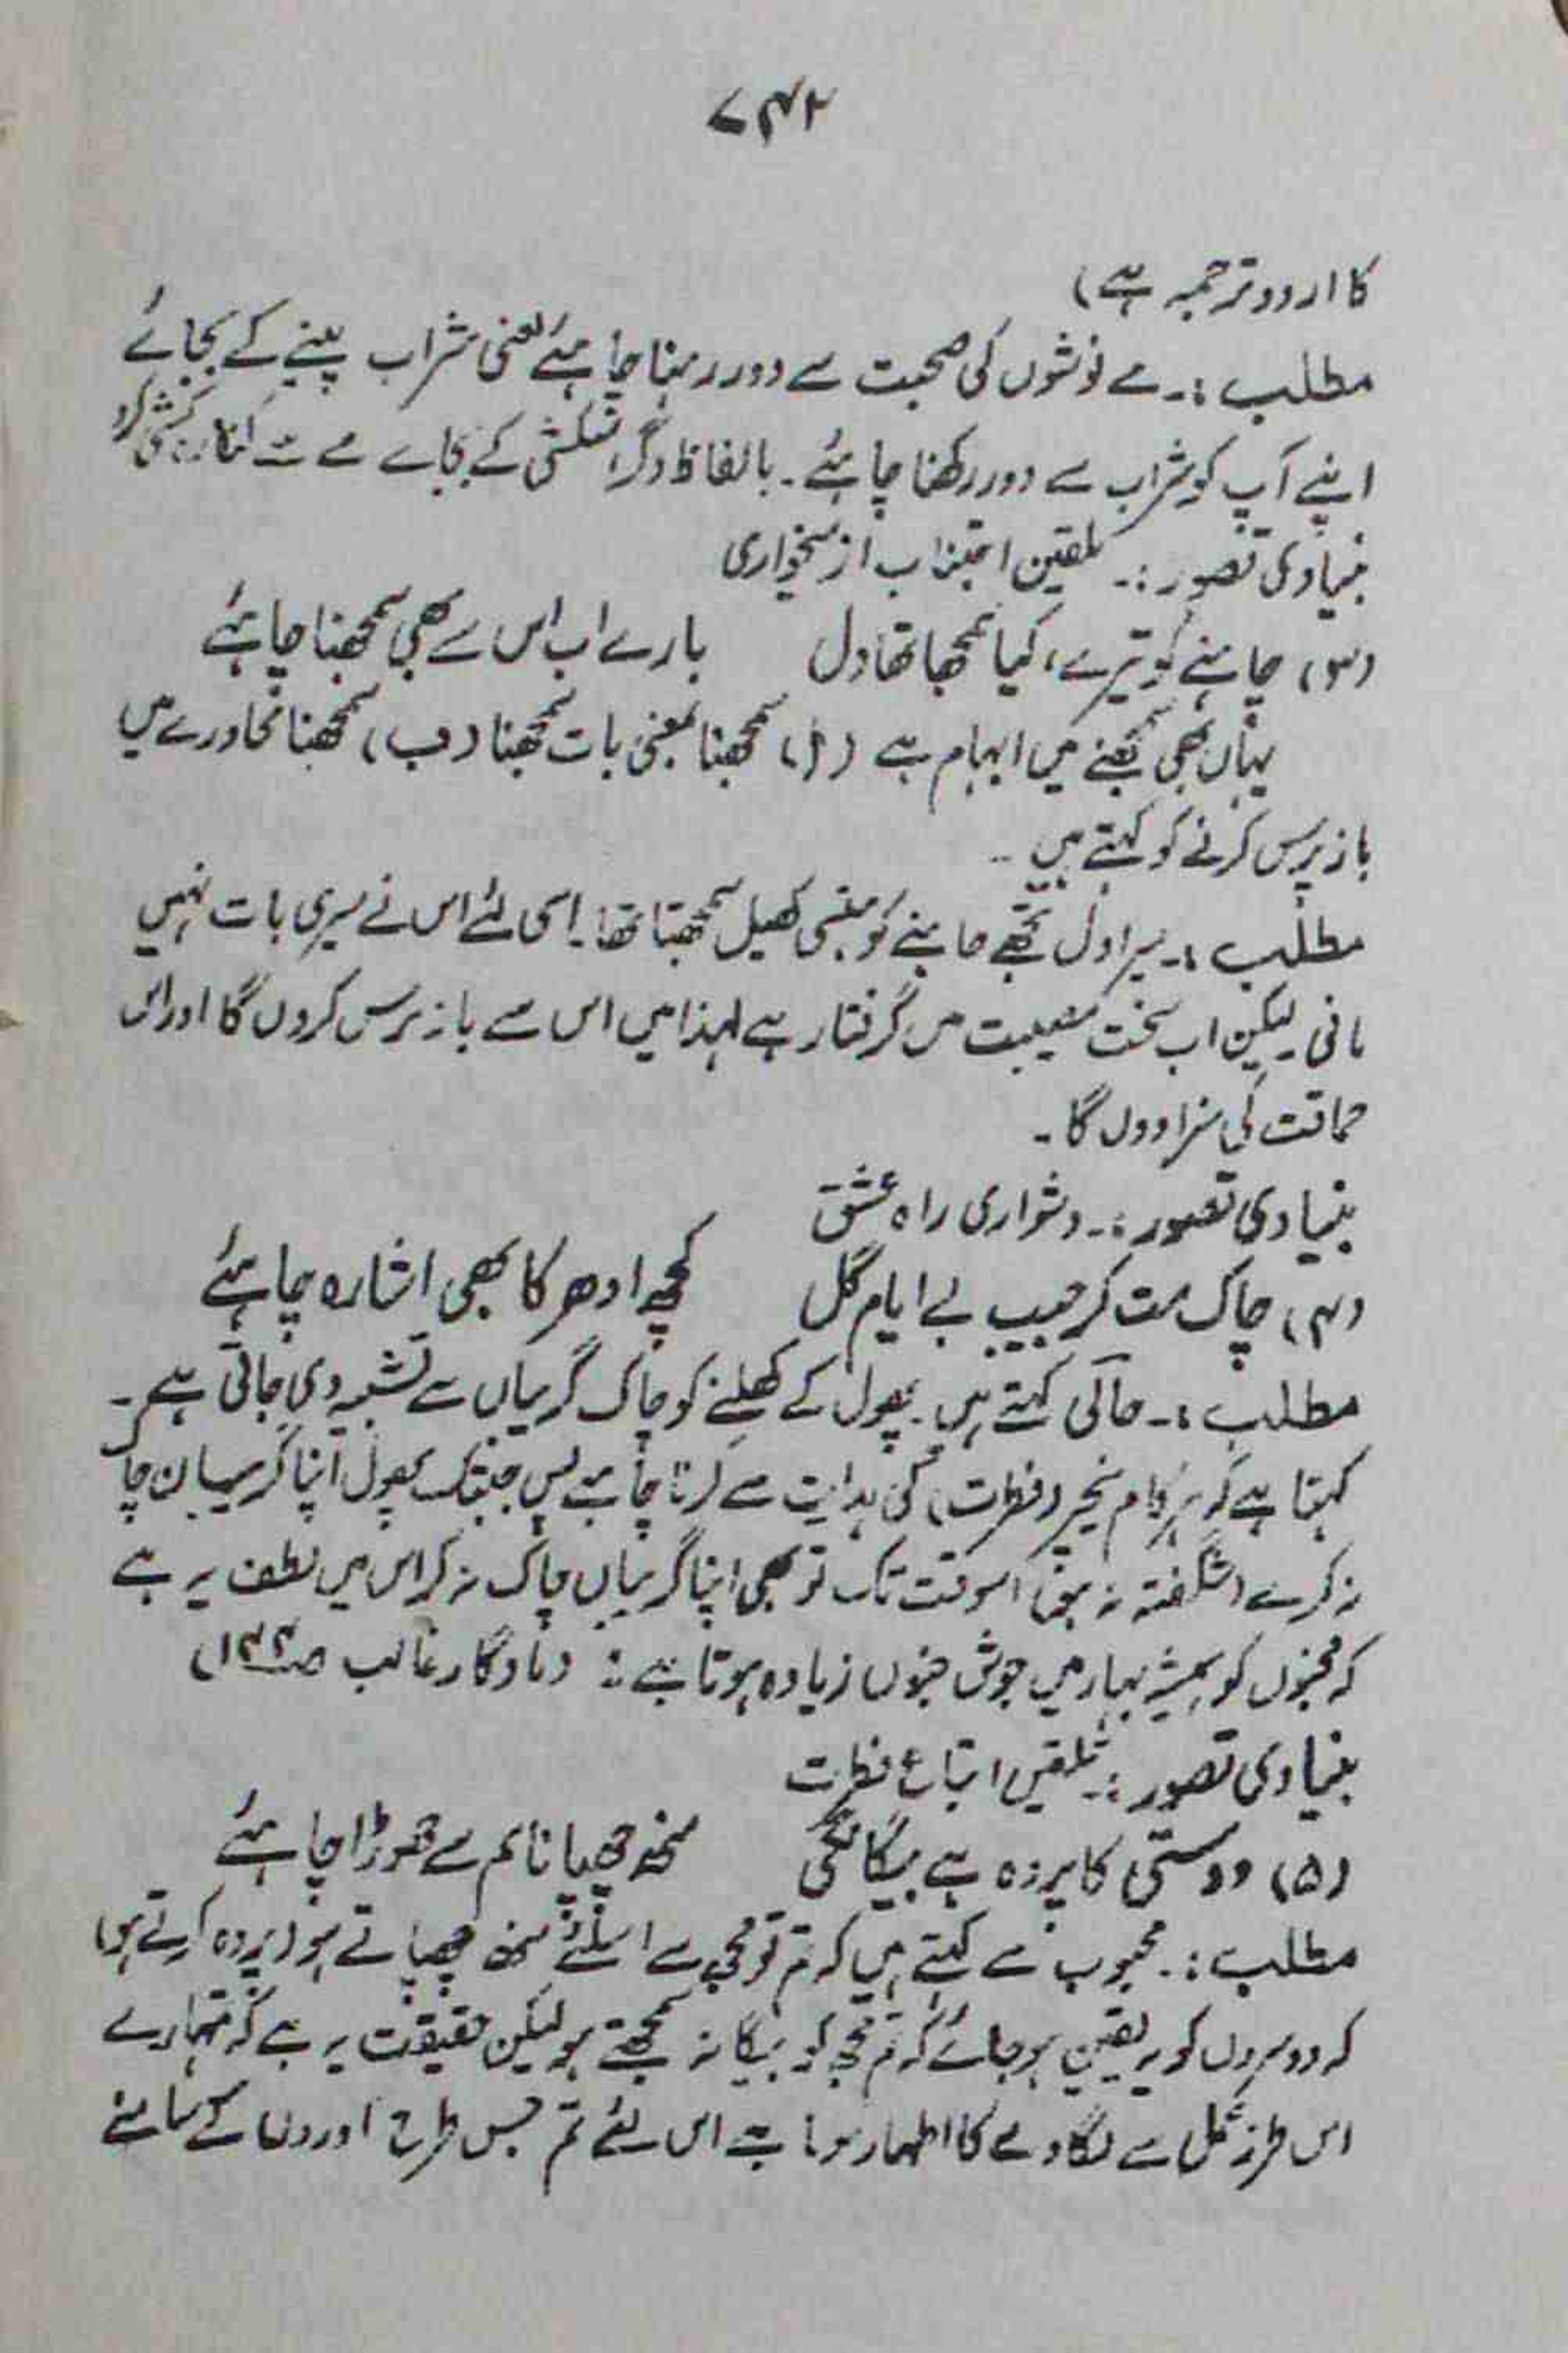 ۷۴۲
کا اردو ترجمہ ہے)
مطلب :۔ مے نوشوں کی صحبت سے دور رہنا چاہئے یعنی شراب پینے کے بجائے
اپنے آپ کو شراب سے دور رکھنا چاہئے۔ بالفاظ دگر کے بجاے مے سے
بنیادی تصور :۔ تلقین اجتناب از میخواری
(۳) چاہنے کو تیرے، کیا سمجھا تھا دل بارے اب اس سے بھی سمجھنا چاہئے
یہاں بھی سمجھنے میں ابہام ہے (ا) سمجھنا بمعنی بات سمجھنا (ب) سمجھنا محاورے میں
باز پرس کرنے کو کہتے ہیں ۔
مطلب :۔ میرا دل تجھے چاہنے کو ہنسی کھیل سمجھتا تھا۔ اسی لئے اس نے میری بات نہیں
مانی لیکن اب سخت مصیبت میں گرفتار ہے لہٰذا میں اس سے باز پرس کروں گا اور اس
حماقت کی سزا دوں گا ۔
بنیادی تصور :۔ دشواری راہ عشق
(۴) چاک مت کر جیب بے ایام گل کچھ ادھر کا بھی اشارہ چاہئے
مطلب :۔ حالی کہتے ہیں۔ پھول کے کھلنے کو چاک گریباں سے تشبیہ دی جاتی ہے ۔
کہتا ہے کہ ہر کام نیچر (فطرت) کی ہدایت سے کرنا چاہیے پس جبتک پھول اپنا گریبان چا
نہ کرے (شگفتہ نہ ہو) اسوقت تک تو بھی اپنا گریباں چاک نہ کر اس میں لطف یہ ہے
کہ مجنوں کو ہمیشہ بہار میں جوش جنوں زیادہ ہوتا ہے : (یادگار غالب صـ۱۴۴)
بنیادی تصور :۔ تلقین اتباع فطرت
(۵) دوستی کا پردہ ہے بیگانگی منھ چھپانا ہم سے چھوڑا چاہئے
مطلب :۔ محبوب سے کہتے ہیں کہ تم تو مجھ سے اسلئے منھ چھپاتے ہو (پردہ کرتے ہو)
کہ دوسروں کو یہ یقین ہو جائے کہ تم مجھ کو بیگانہ سمجھتے ہو لیکن حقیقت یہ ہے کہ تمہارے
اس طرز عمل سے لگاوٹ کا اظہار ہوتا ہے اس لئے تم جس طرح اوروں کے سامنے